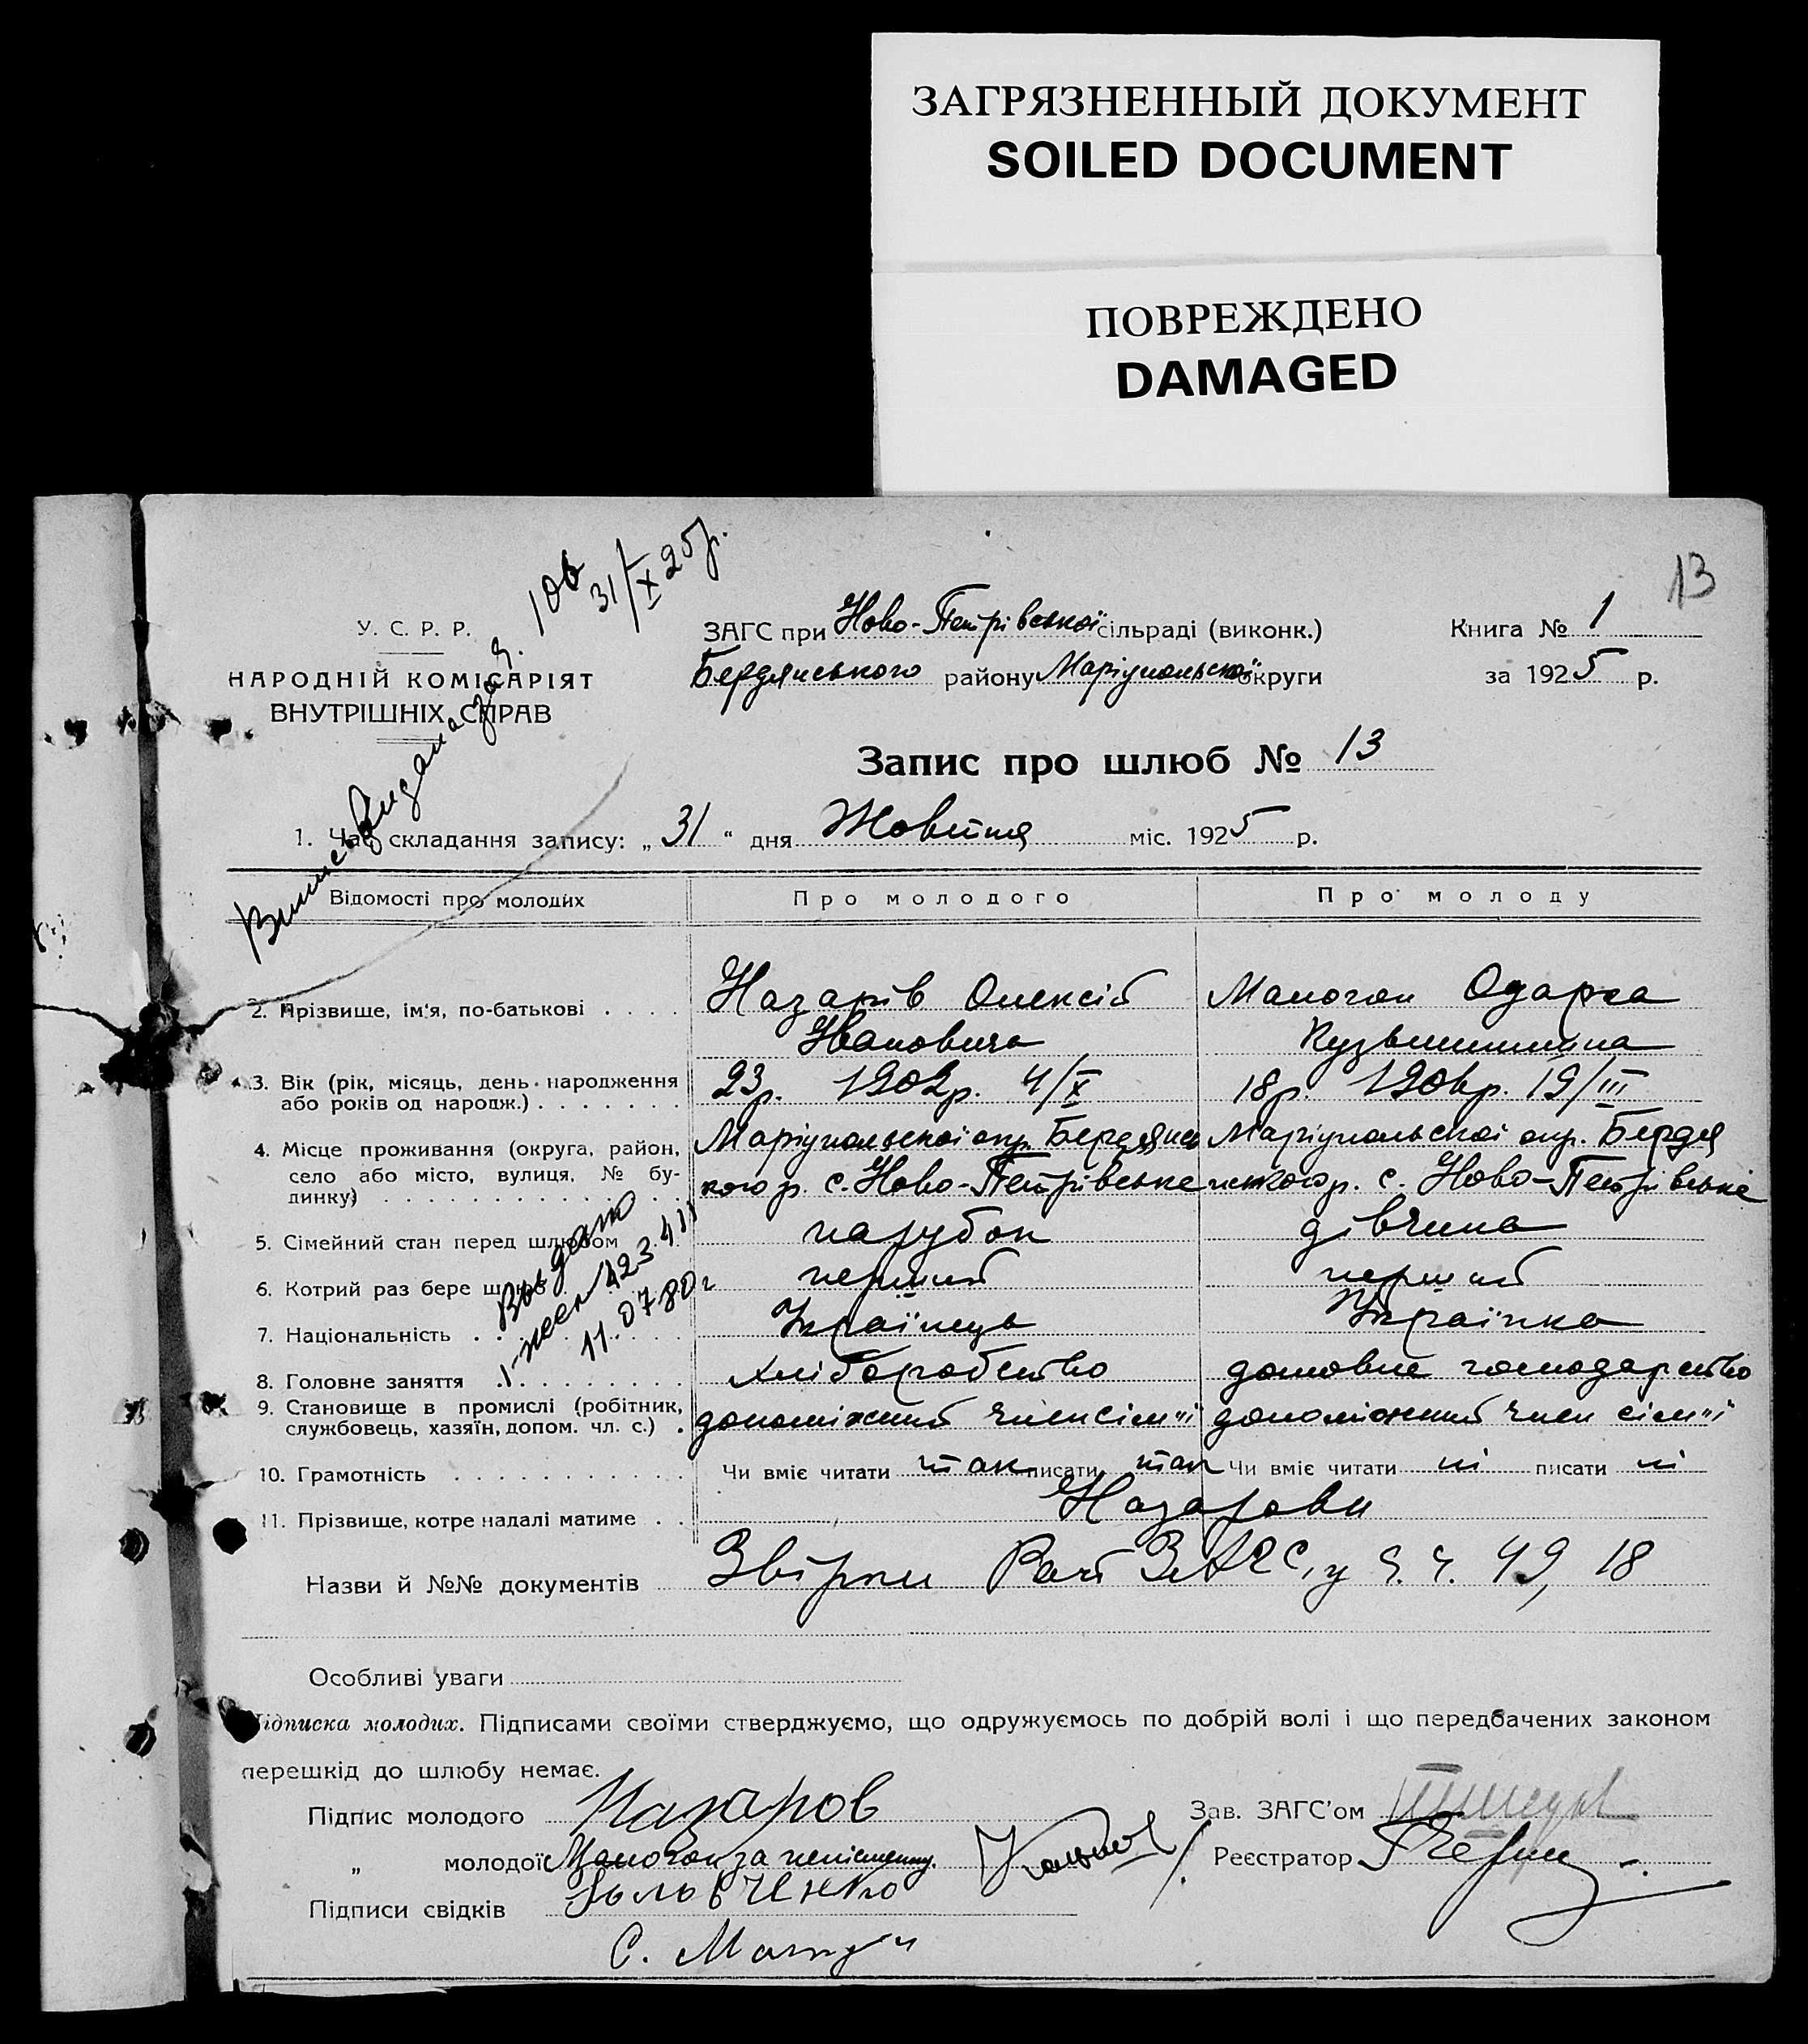 ЗАГРЯЗНЕННЫЙ ДОКУМЕНТ
SOILED DOCUMENT
ПОВРЕЖДЕНО
DAMAGED
13
У. С. Р. Р.
НАРОДНІЙ КОМІСАРІЯТ
ВНУТРІШНІХ СПРАВ
Випись видана за ч. 106
31/X 25р.
ЗАГС при Ново-Петрівської сільраді (виконк.)
Бердянського району Маріупольської округи
Книга № 1
за 1925 р.
Запис про шлюб № 13
1. Час складання запису: „ 31 “ дня Жовтня міс. 1925 р.
Відомості про молодих Про молодого Про молоду
2. Прізвище, ім'я, по-батькові . . . . Назарів Олексій Одарка
Іванович
3. Вік (рік, місяць, день народження
або років од народж.) . . . . . . . 23р. 1902р. 4/X 18р. 19/III
4. Місце проживання (округа, район,
село або місто, вулиця, № бу-
динку) . . . . . . . . . . . . . .
Маріупольської окр. Бердянсь Маріупольскої окр. Бердя
кого р. с. Ново-Петрівське нського р. с. Ново-Петрівське
5. Сімейний стан перед шлюбом парубок дівчина
6. Котрий раз бере шлюб перший перший
7. Національність . . Українець Українка
8. Головне заняття . . . . . . . . Хліборобство домовне господарство
9. Становище в промислі (робітник,
службовець, хазяїн, допом. чл. с.) . допоміжний член сім"ї допоміжний член сім"ї
10. Грамотність . . . . . . . . . . . Чи вміє читати так писати так Чи вміє читати ні писати ні
11. Прізвище, котре надалі матиме . . Назарови
Выдано
11.07.80г
Назви й №№ документів Звірки Рай ЗАГС, у ч. ч. 49, 18
Особливі уваги
Підписка молодих. Підписами своїми стверджуємо, що одружуємось по добрій волі і що передбачених законом
перешкід до шлюбу немає.
Підпис молодого Назаров Зав. ЗАГС'ом
„ молодої за неписьменну. Реєстратор
Підписи свідків
С.